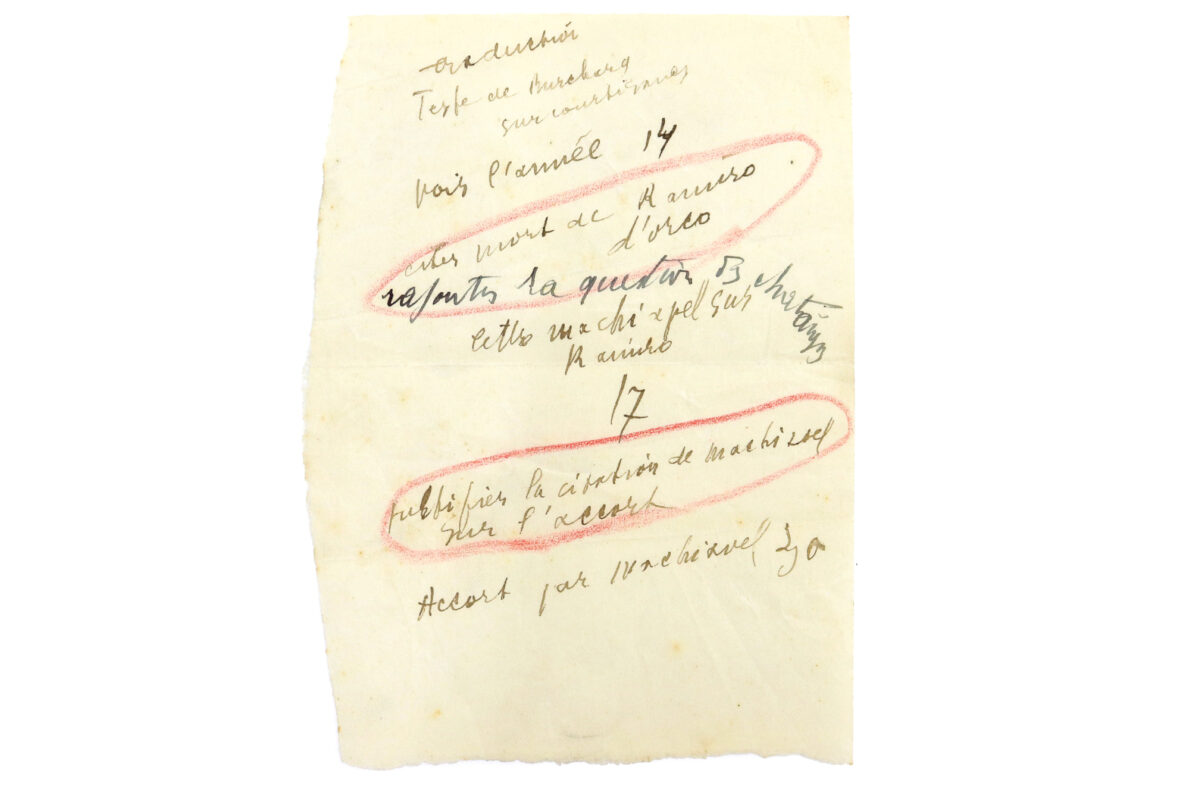 traduction
Texte de Burchard
sur courtisanes
voir l'année 14
citer mort de Ramiro
d'orco
rajouter la question
lettre machiavel sur
Ramiro
17
la citation de machiavel
sur l'accort
Accort par Machiavel